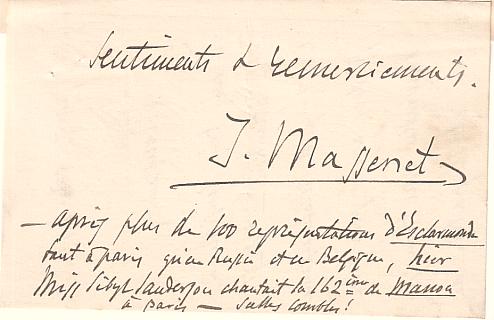 Sentiments & remerciements.
J. Massenet
— après plus de 100 représentations d'Esclarmonde
tant à paris qu'en Russie et en Belgique, hier
Miss Sibyl Sanderson chantait la 162ème de Manon
à Paris — salles combles!